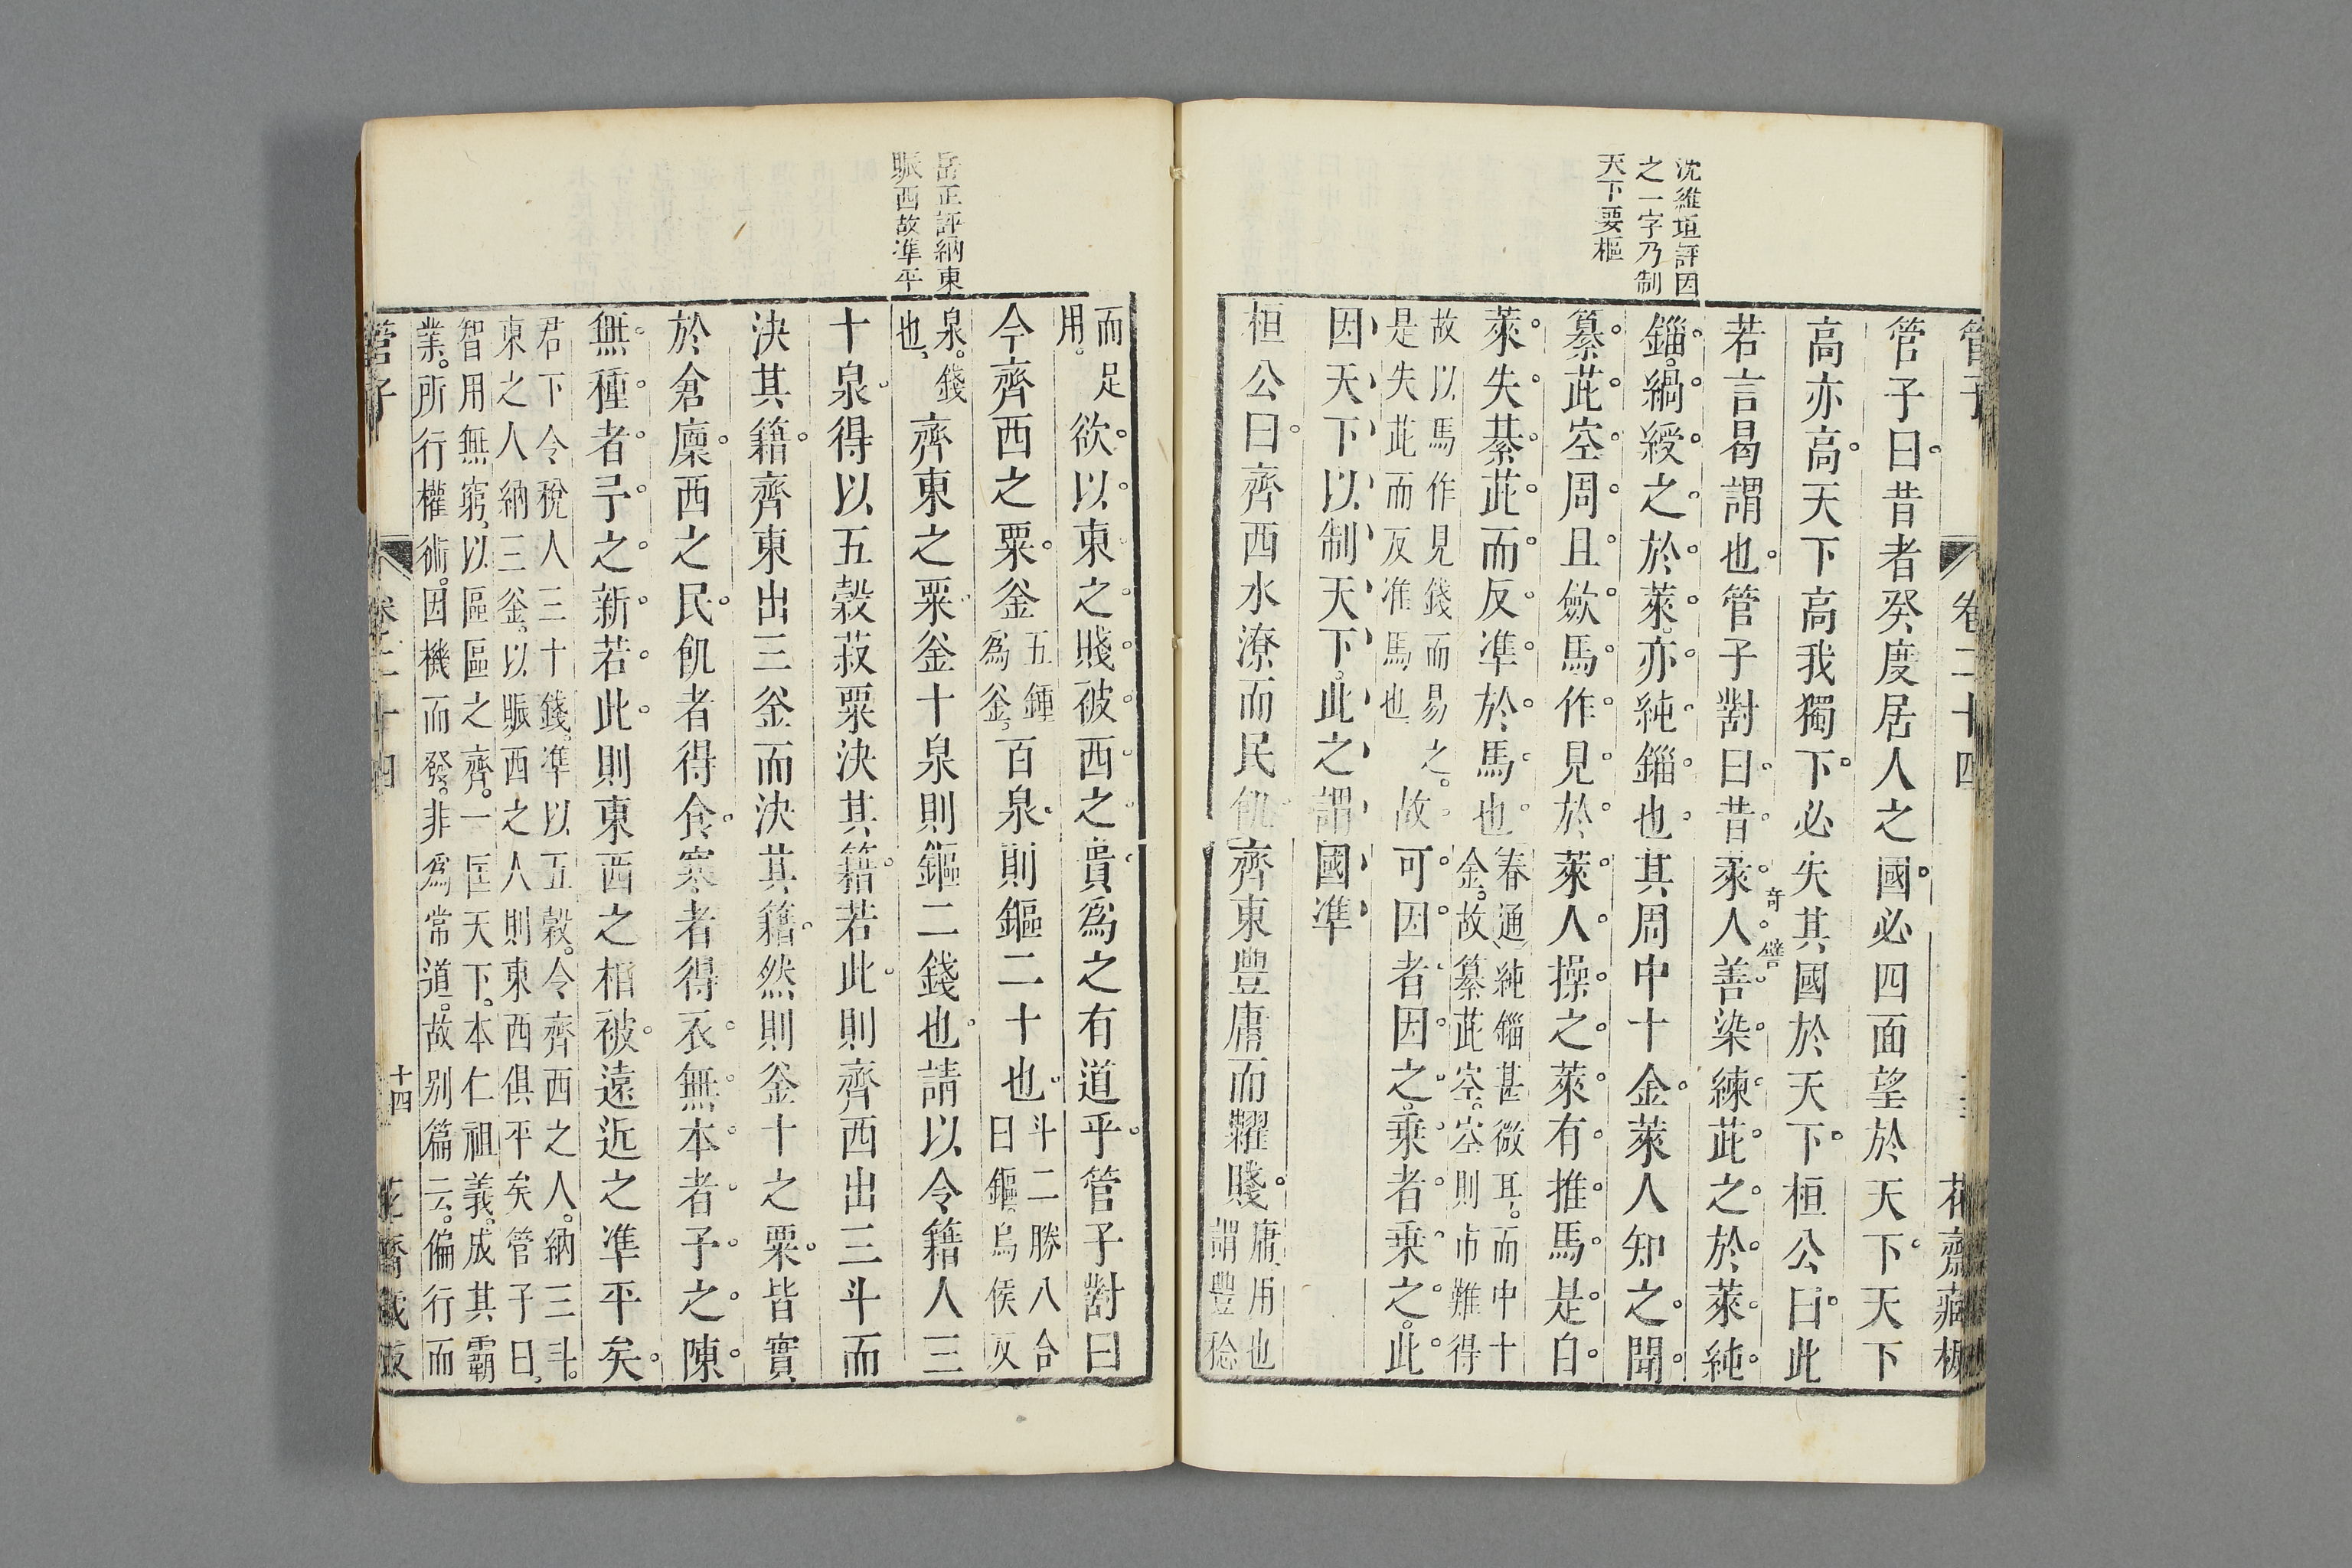 沈維垣評因
之一字乃制
天下要樞
管子 卷二十四 花齋藏板
管子曰昔者癸度居人之國必四面望於天下天下
高亦高天下高我獨下必失其國於天下桓公曰此
若言曷謂也管子對曰昔萊人善染練茈之於萊純
奇譬
錙緺綬之於萊亦純錙也其周中十金萊人知之聞
纂茈空周且斂馬作見於萊人操之萊有推馬是自
萊失綦茈而反準於馬也春通純錙甚微耳而中十
金故纂茈空空則市難得
故以馬作見錢而易之
是失茈而反准馬也故可因者因之乘者乘之此
因天下以制天下此之謂國準
桓公曰齊西水潦而民飢齊東豐庸而糶賤庸用也
謂豐稔
岳正評納東
賑西故準平
而足
用欲以東之賤被西之貴爲之有道乎管子對曰
今齊西之粟釜五鍾
爲釜百泉則鏂二十也斗二勝八合
曰鏂烏侯反
泉錢
也齊東之粟釜十泉則鏂二錢也請以令籍人三
十泉得以五穀菽粟決其籍若此則齊西出三斗而
決其籍齊東出三釜而決其籍然則釜十之粟皆實
於倉廩西之民飢者得食寒者得衣無本者予之陳
無種者予之新若此則東西之相被遠近之準平矣
君下令稅人三十錢準以五穀令齊西之人納三斗
東之人納三釜以賑西之人則東西俱平矣管子曰
智用無窮以區區之齊一匡天下本仁祖義成其霸
業所行權術因機而發非爲常道故别篇云偏行而
管子 卷二十四 十四 花齋藏板